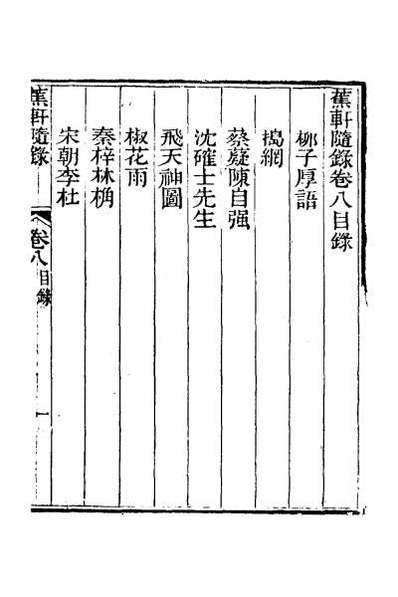 蕉軒隨錄卷八目錄
柳子厚語
搗網
蔡薿陳自强
沈確士先生
飛天神圖
椒花雨
秦梓林桷
宋朝李杜
蕉軒隨錄
卷八目錄
一